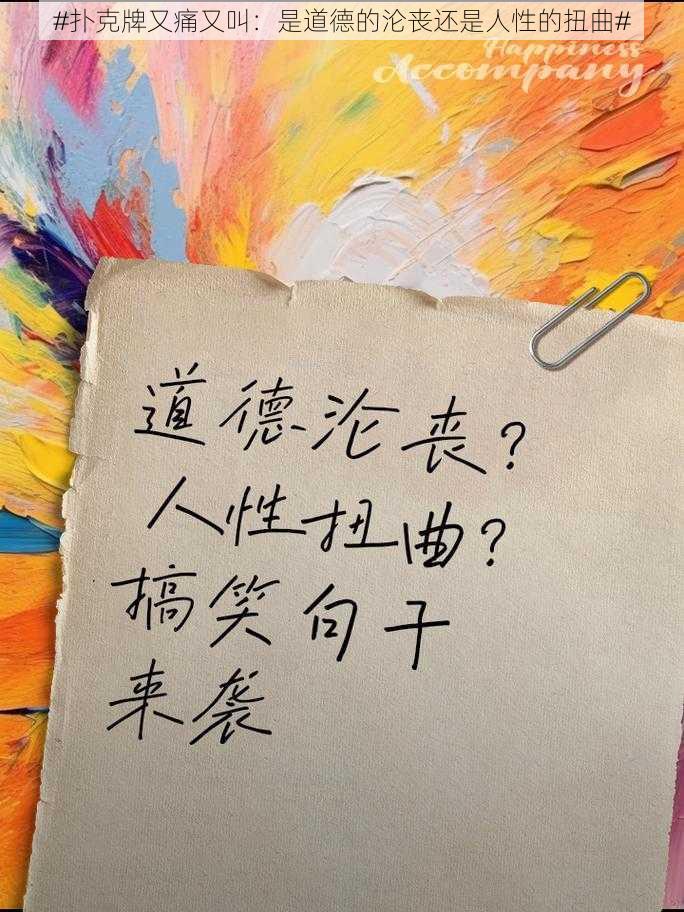 #扑克牌又痛又叫：是道德的沦丧还是人性的扭曲#
Happiness
Accompany
道德沦丧?
人性扭曲?
搞笑句子
来袭